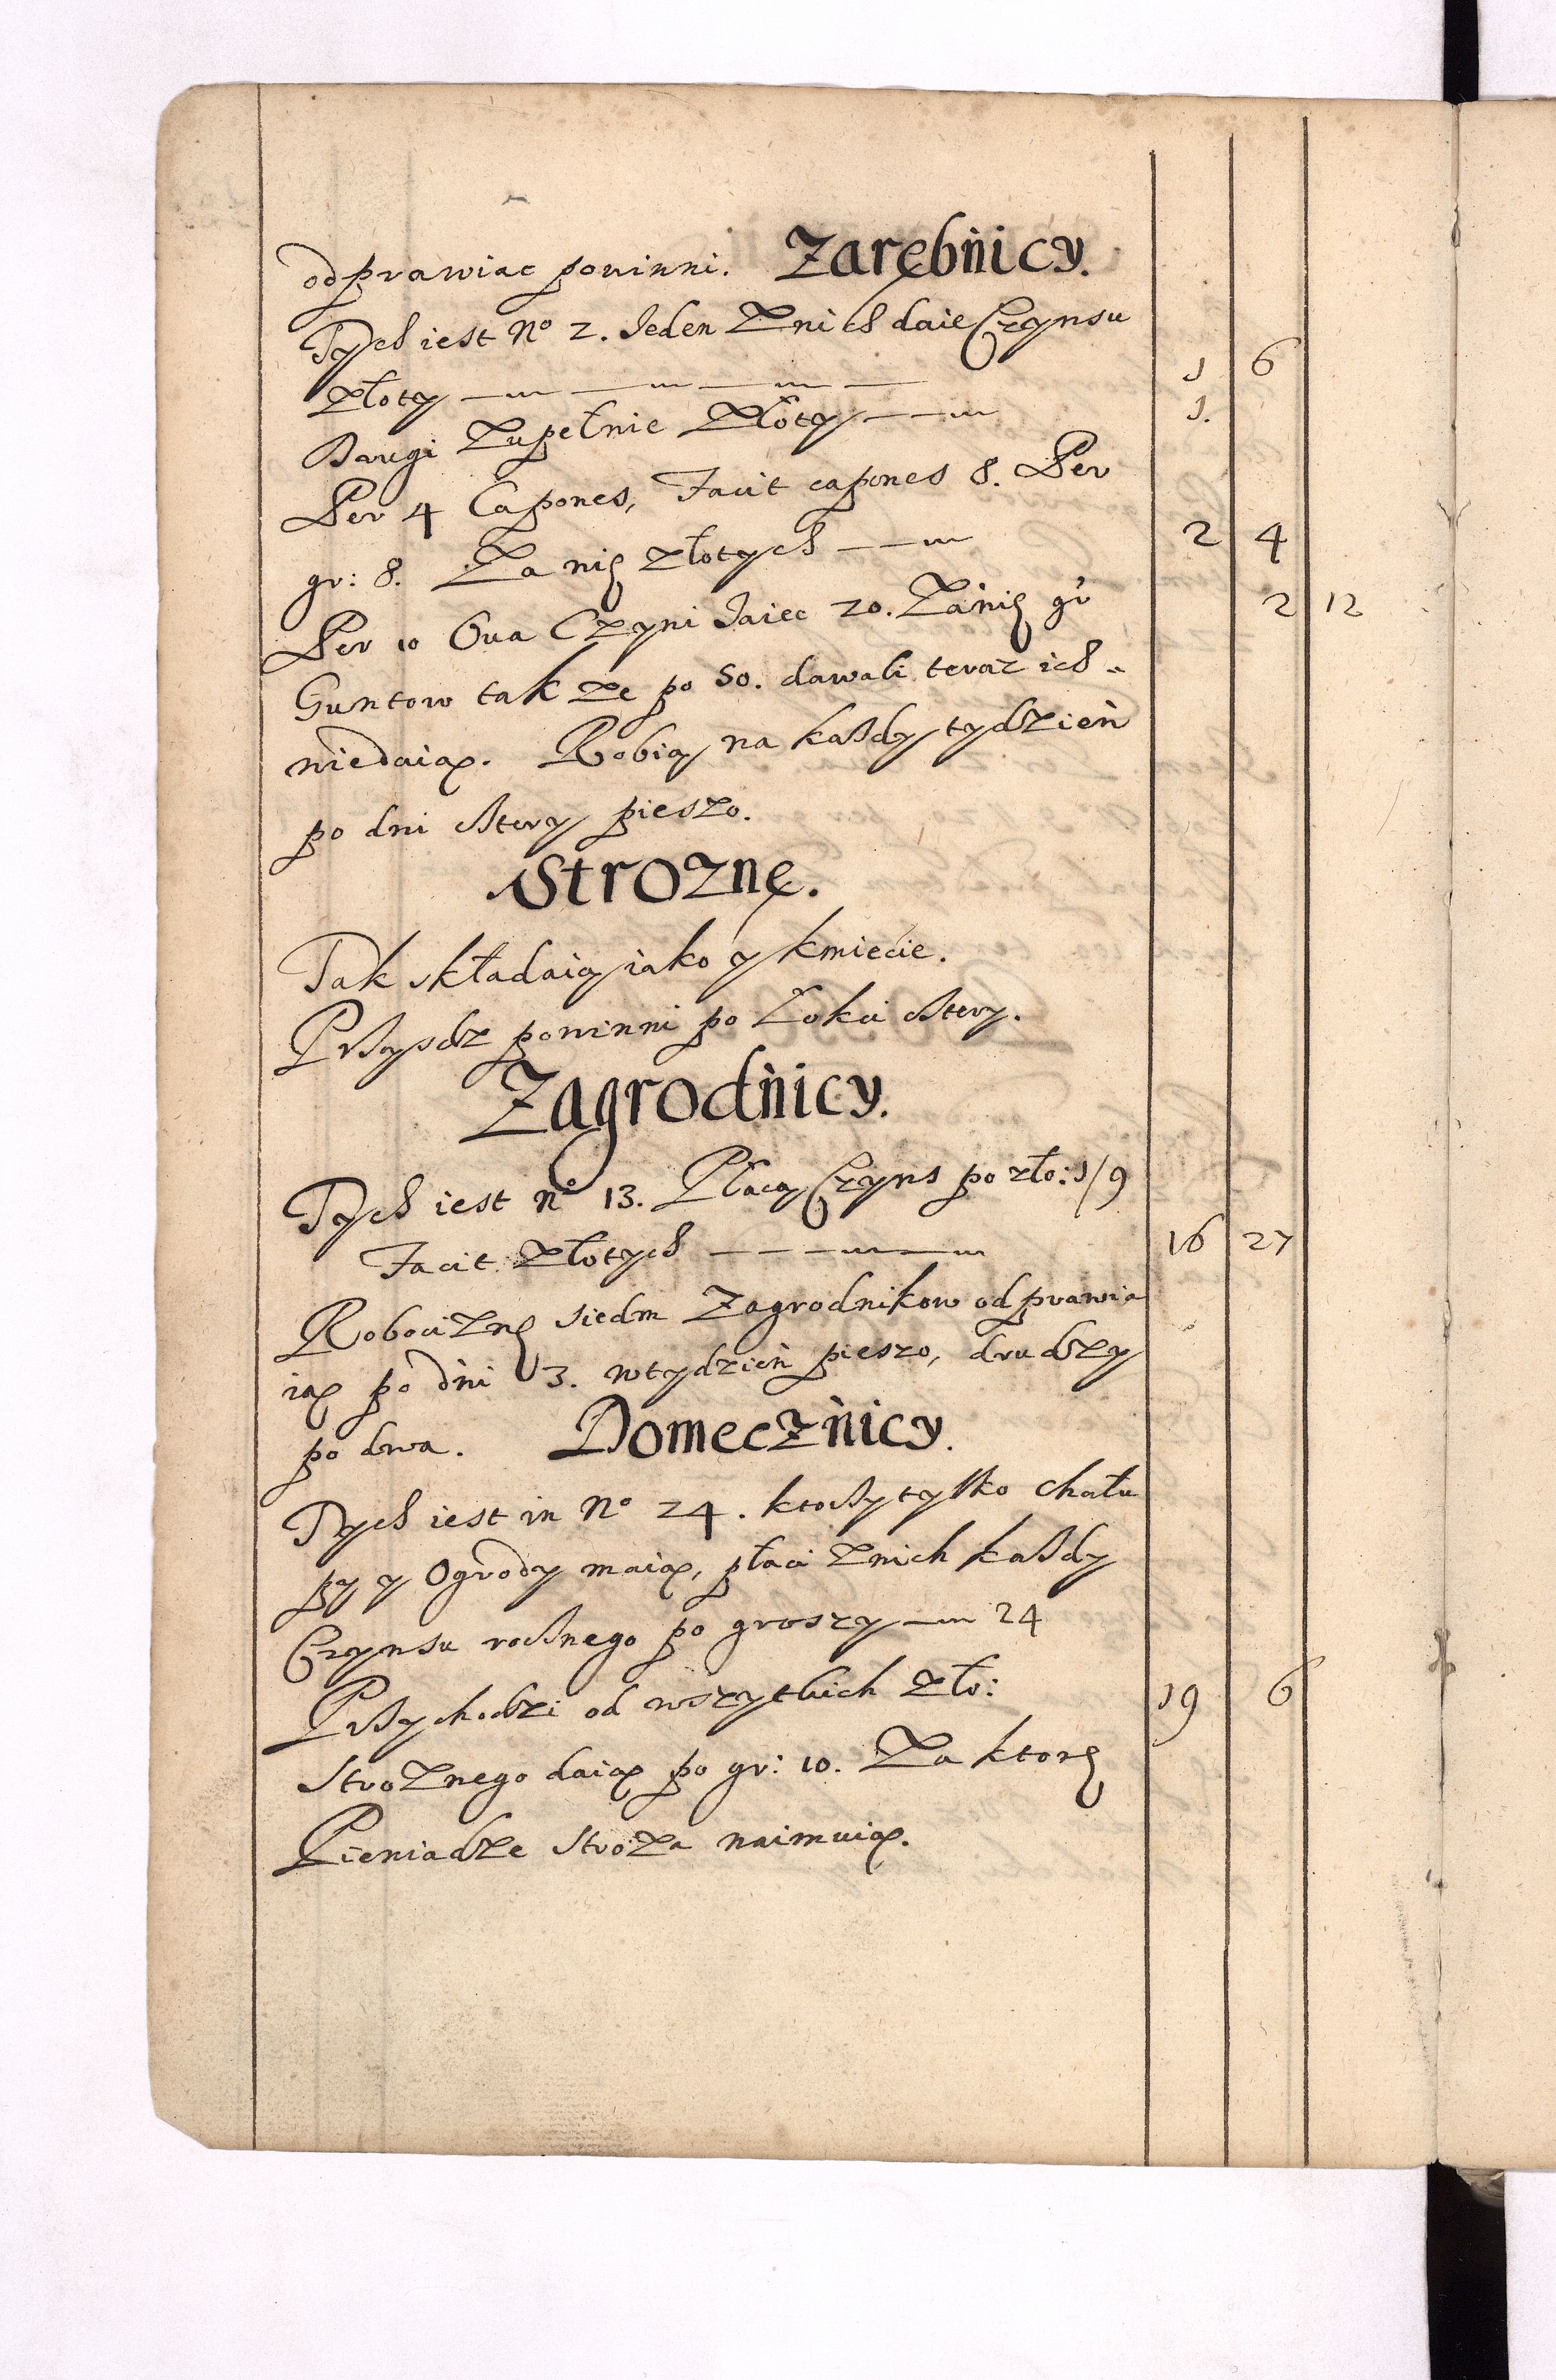 odprawiac powinni. Zarębnicy.
Tych iest No 2. Jeden Z nich daie Czynsu
Złoty 1 6
Drugi Zupełnie Złoty 1.
Per 4 Capones, Facit capones 8. Per
gr: 8. Za nię Złotych 2 4
Per 10 Ova Czyni Jaiec 20. Zanię gr 2 12
Guntow tak Ze po 50. dawali teraz ich
niedaią. Robią na każdy tydzień
po dni cztery pieszo.
Strozne.
Tak składaią iako y kmiecie.
Przysdz powinni po Łokci cztery.
Zagrodnicy.
Tych iest No 13. Płacą Czyns po zło: 1/9
Facit Złotych 16 27
RobociZnę siedm Zagrodnikow odprawia
ią po dni 3. wtydzień pieszo, drudzy
po dwa. Domecznicy.
Tych iest in No 24. ktorzy tylko chału
py y Ogrody maią, płaci Znich każdy
Czynsu rocznego po groszy 24
Przychodzi od wszytkich Zło: 19 6
StroZnego daią po gr: 10. Za ktorę
Pieniadze StroZa naimuią.